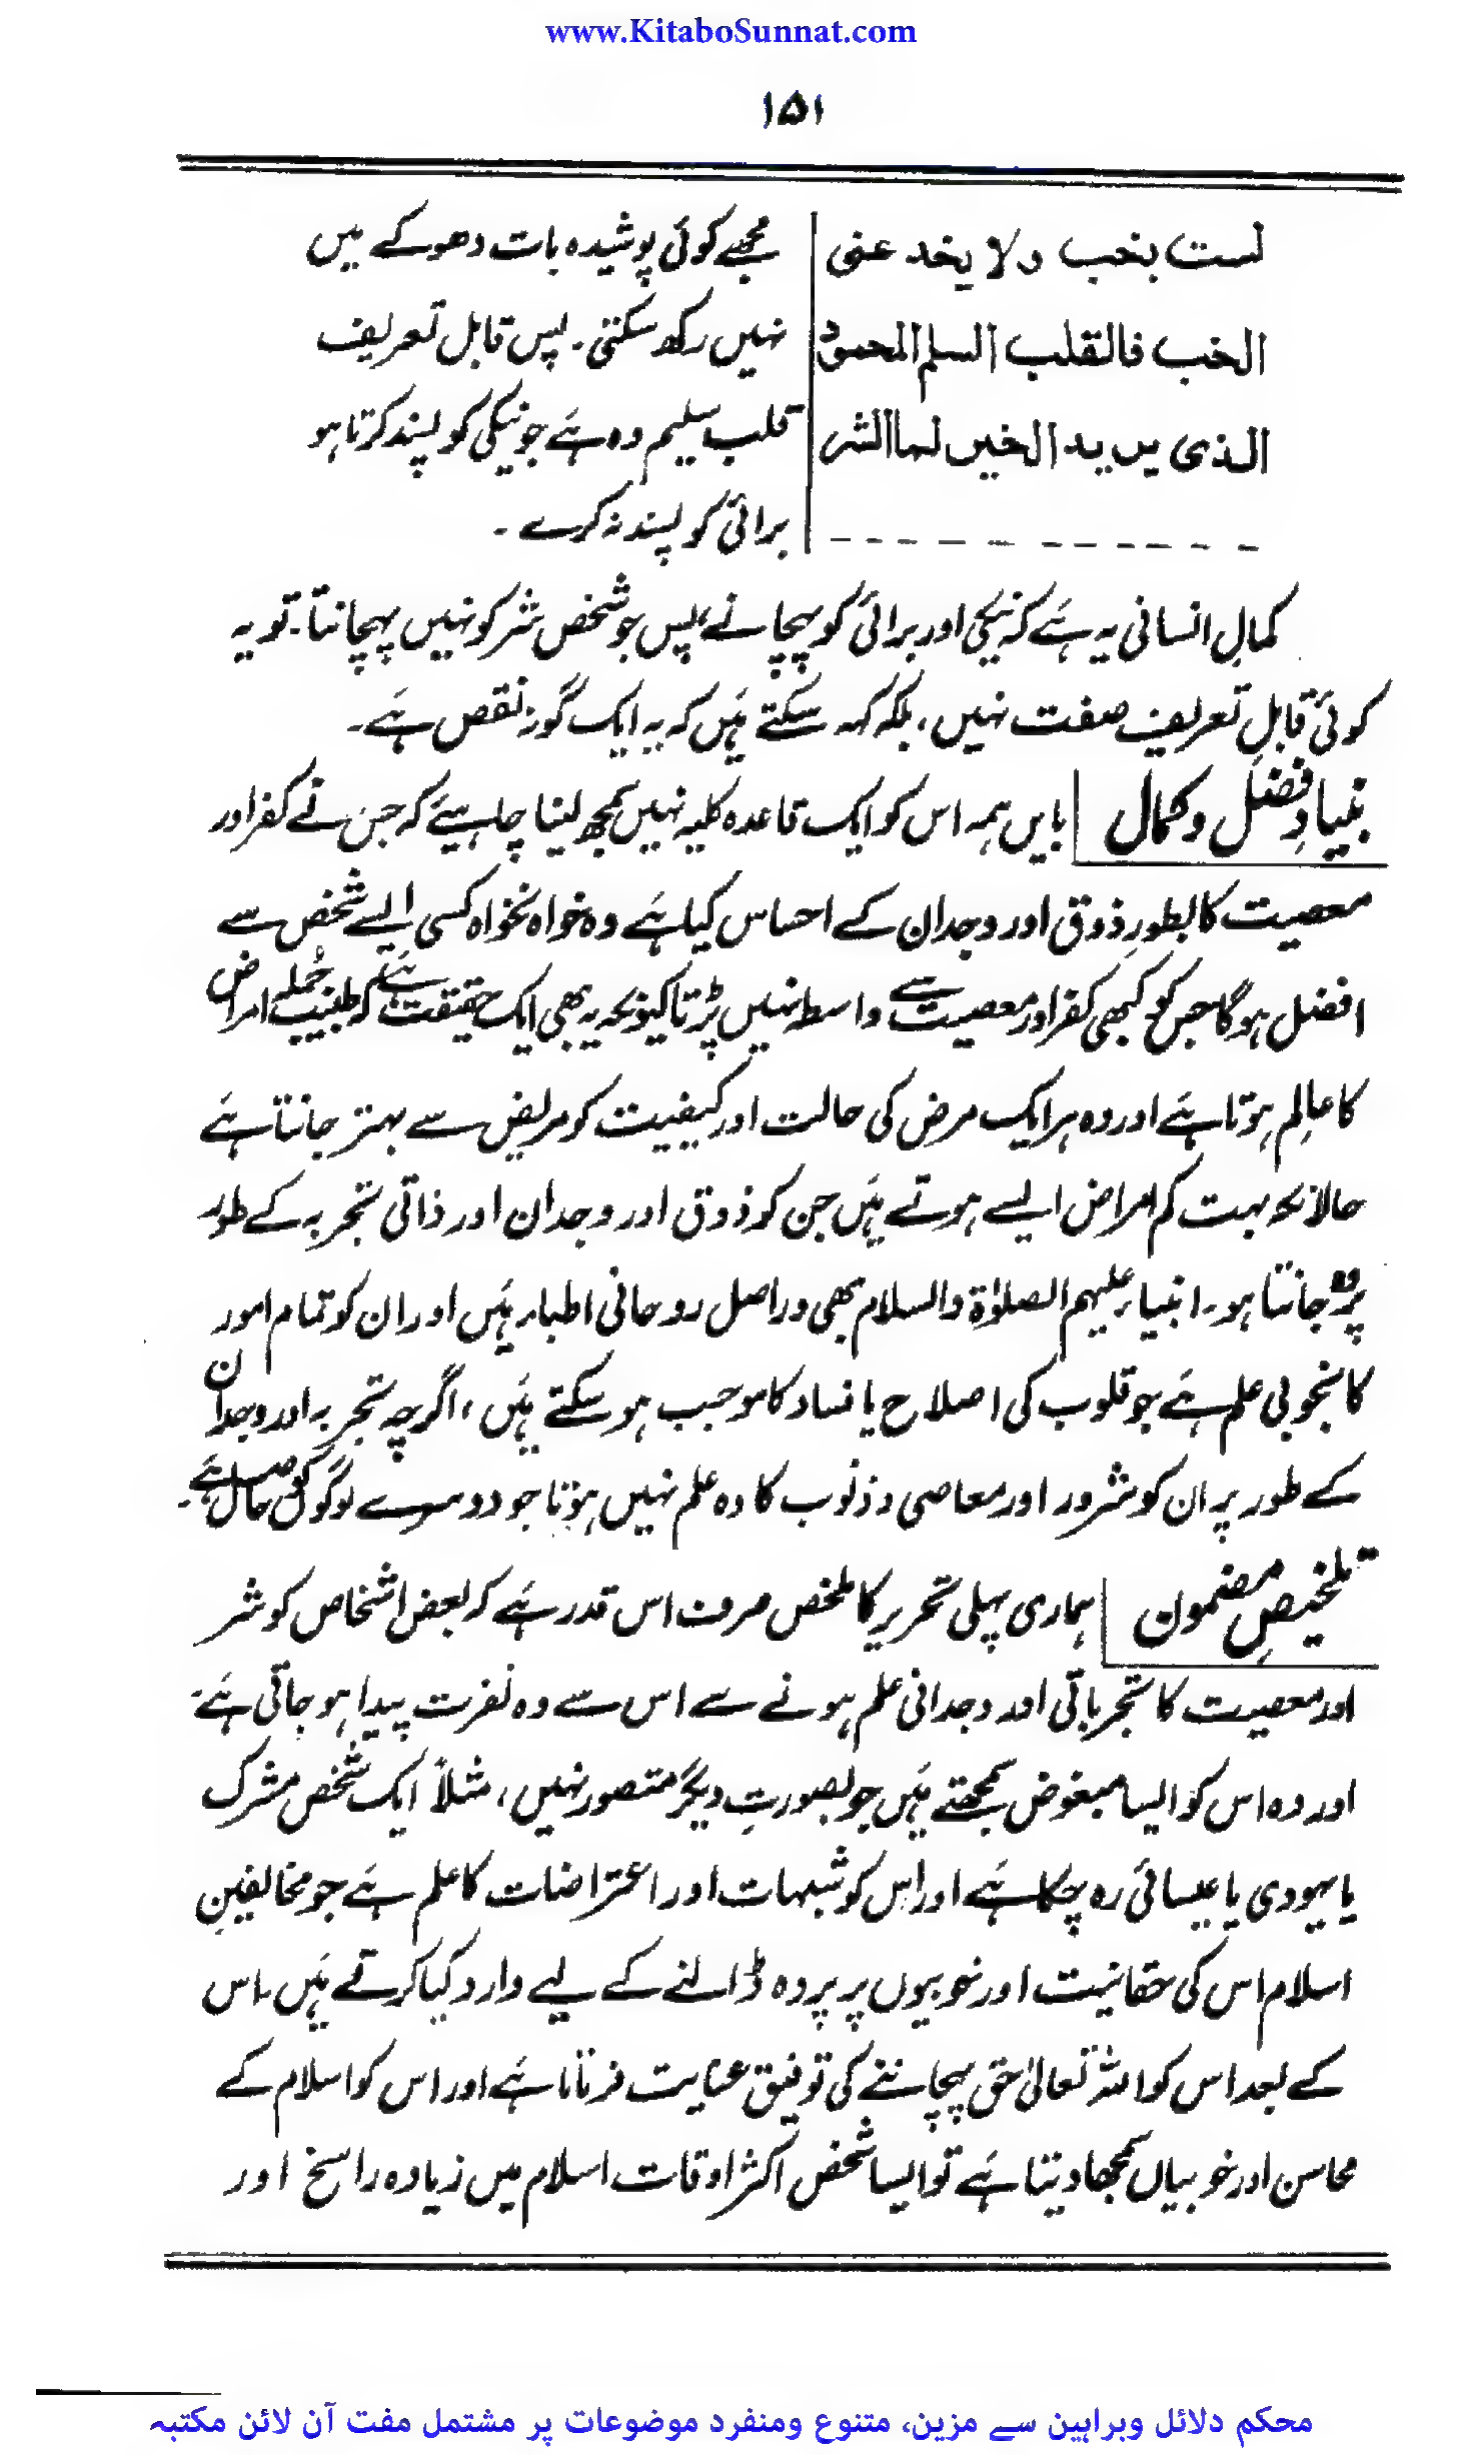 www.KitaboSunnat.com
۱۵۱
لست بخب ولا یخد عنی
الخب فالقلب السلم المحمود
الذی یرید الخیر لما الشر
- - - - - - - - - - - -
مجھے کوئی پوشیدہ بات دھوکے میں
نہیں رکھ سکتی۔ پس قابل تعریف
قلب سلیم وہ ہے جو نیکی کو پسند کرتا ہو
برائی کو پسند نہ کرے۔
کمالِ انسانی یہ ہے کہ نیکی اور برائی کو پہچانے، پس جو شخص شر کو نہیں پہچانتا۔ تو یہ
کوئی قابلِ تعریف صفت نہیں، بلکہ کہہ سکتے ہیں کہ یہ ایک گونہ نقص ہے۔
بنیادِ فضل و کمال
بایں ہمہ اس کو ایک قاعدہ کلیہ نہیں سمجھ لینا چاہیئے کہ جس نے کفر اور
معصیت کا بطورِ ذوق اور وجدان کے احساس کیا ہے وہ خواہ نخواہ کسی ایسے شخص سے
افضل ہوگا جس کو کبھی کفر اور معصیت سے واسطہ نہیں پڑتا کیونکہ یہ بھی ایک حقیقت ہے کہ طبیب جملے امراض
کا عالِم ہوتا ہے اور وہ ہر ایک مرض کی حالت اور کیفیت کو مریض سے بہتر جانتا ہے
حالانکہ بہت کم امراض ایسے ہوتے ہیں جن کو ذوق اور وجدان اور ذاتی تجربہ کے طور
پر وہ جانتا ہو۔ انبیاء علیہم الصلوٰۃ والسلام بھی دراصل روحانی اطباء ہیں اور ان کو تمام امور
کا بخوبی علم ہے جو قلوب کی اصلاح یا فساد کا موجب ہو سکتے ہیں، اگرچہ تجربہ اور وجدان
کے طور پر ان کو شرور اور معاصی و ذنوب کا وہ علم نہیں ہوتا جو دوسرے لوگوں کو حاصل ہے۔
تلخیصِ مضمون
ہماری پہلی تحریر کا ملخص صرف اس قدر ہے کہ بعض اشخاص کو شر
اور معصیت کا تجرباتی اور وجدانی علم ہونے سے اس سے وہ نفرت پیدا ہو جاتی ہے۔
اور وہ اس کو ایسا مبغوض سمجھتے ہیں جو بصورتِ دیگر متصور نہیں، مثلاً ایک شخص مشرک
یا یہودی یا عیسائی رہ چکا ہے اور اس کو شبہات اور اعتراضات کا علم ہے جو مخالفینِ
اسلام اس کی حقانیت اور خوبیوں پر پردہ ڈالنے کے لیے وارد کیا کرتے ہیں۔ اس
کے بعد اس کو اللہ تعالیٰ حق پہچاننے کی توفیق عنایت فرماتا ہے اور اس کو اسلام کے
محاسن اور خوبیاں سمجھا دیتا ہے تو ایسا شخص اکثر اوقات اسلام میں زیادہ راسخ اور
محکم دلائل وبراہین سے مزین، متنوع ومنفرد موضوعات پر مشتمل مفت آن لائن مکتبہ